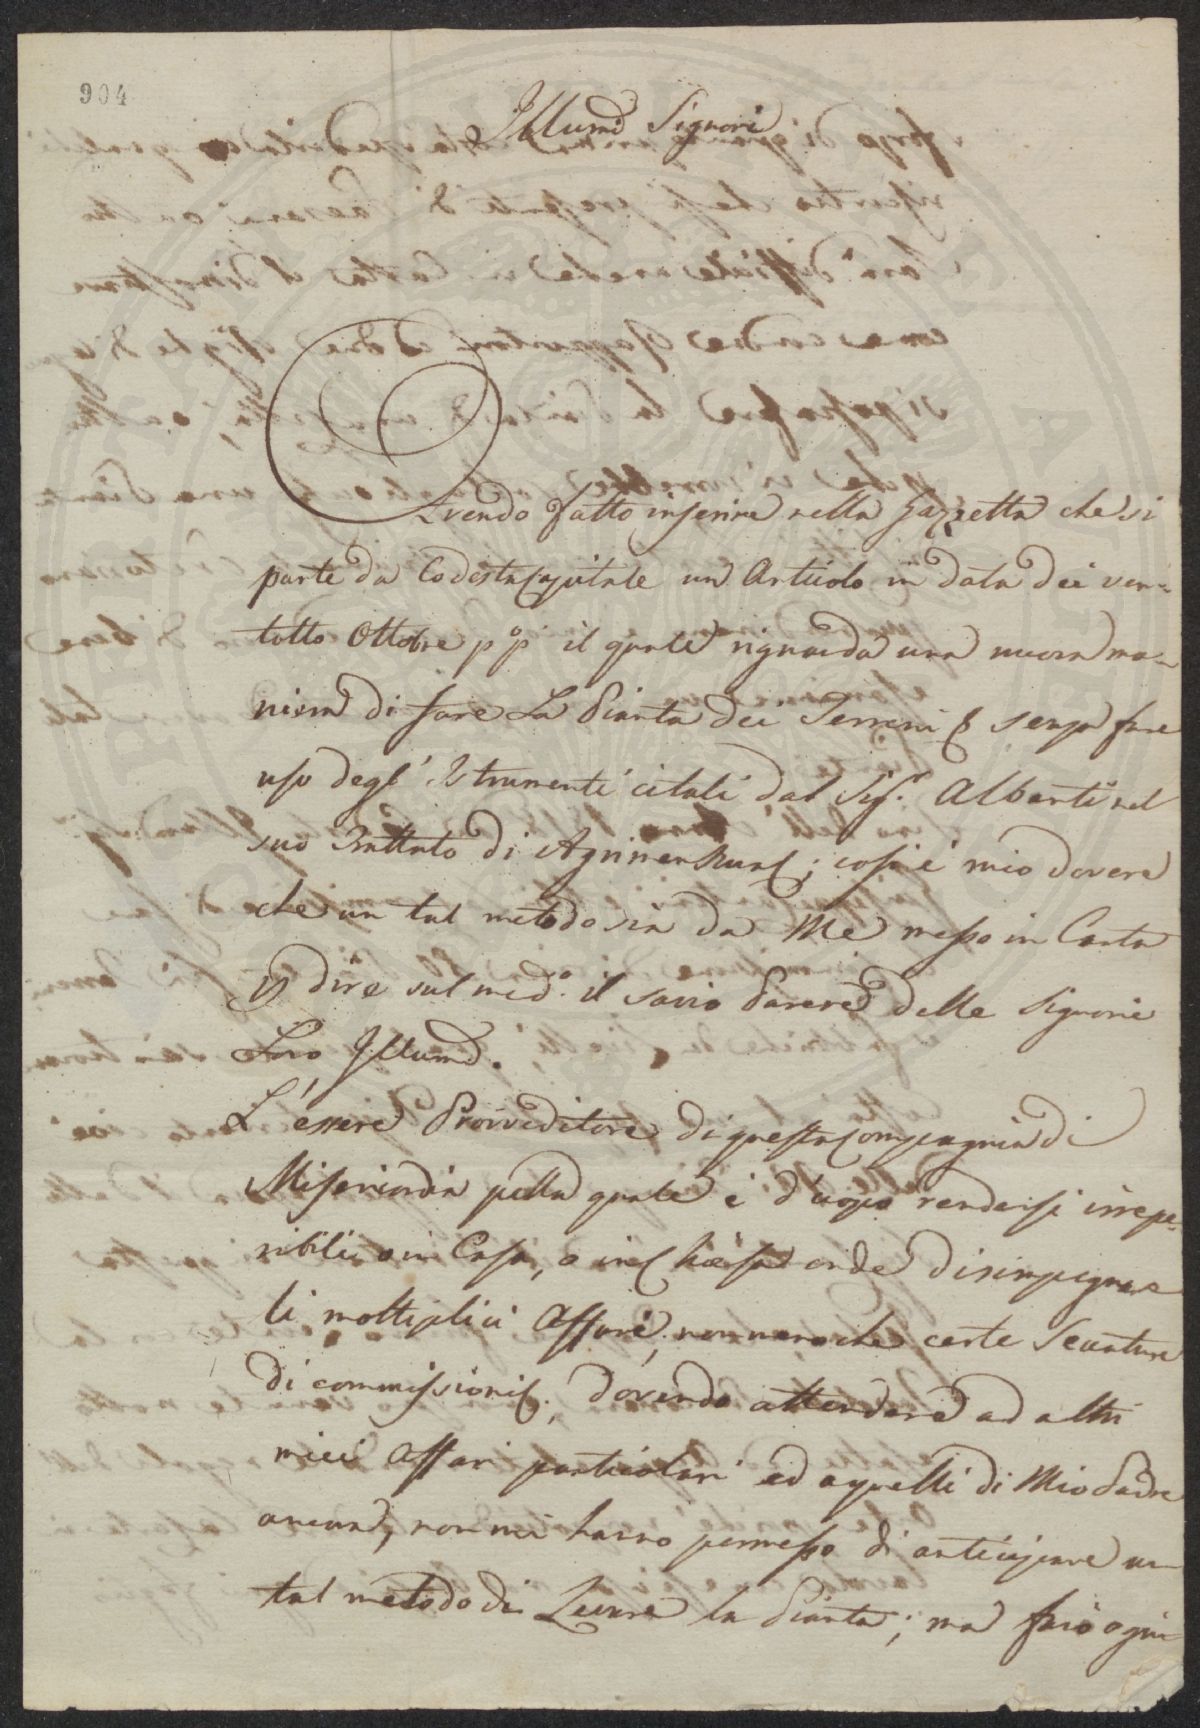 904
Illumi Signori
Avendo fatto inserire nella Gazzetta che si
parte da Codesta Capitale un Articolo in data dei ven-
totto Ottobre p.o p.o il quale riguarda una nuova ma-
niera di fare La Pianta dei Terreni senza fare
uso degl' Istrumenti citati dal Sig.r Alberti nel
suo Trattato di Agrimensura; così è mio dovere
che un tal metodo sia da Me messo in Carta
dire sul med.o il savio Parere delle Signorie
Loro Illume.
L'essere Provveditore di questa Compagnia di
Misericordia pella quale è d'uopo rendersi irrepe-
ribili o in Casa, o in Chiesa onde disimpegnare
li moltiplici Affari, nonmeno che certe Seccature
di commissioni, dovendo attendere ad altri
miei Affari particolari ed a quelli di Mio Padre
ancora, non mi hanno permesso di anticipare un
tal metodo di Levare la Pianta; ma farò ogni